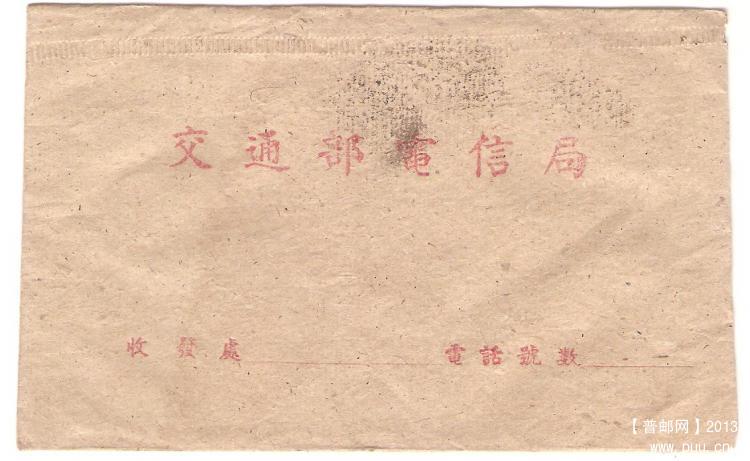 交通部電信局
收發處 電話號數
【普邮网】2013
www.puu.cn